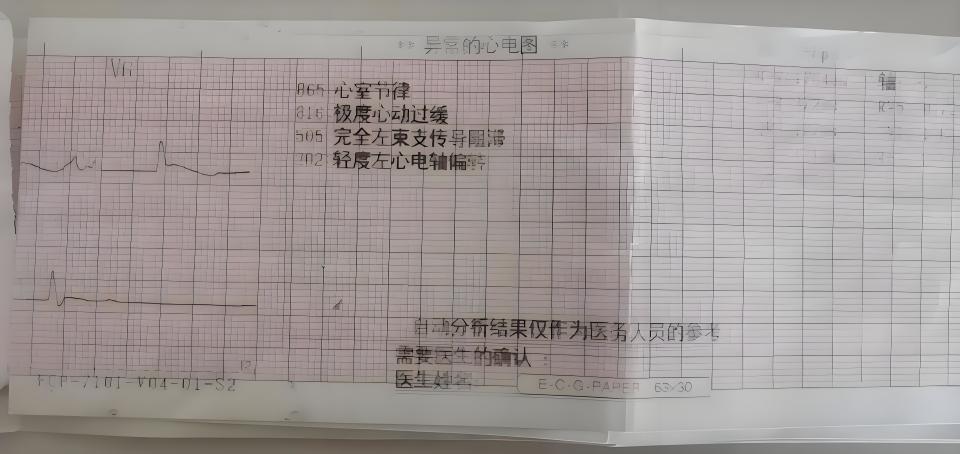 ** 异常的心电图 **
V6
865 心室节律
816 极度心动过缓
505 完全左束支传导阻滞
702 轻度左心电轴偏转
轴
自动分析结果仅作为医务人员的参考
需要医生的确认:
医生姓名:
FCP-7101-V04-01-S2
E-C-G-PAPER 63/30